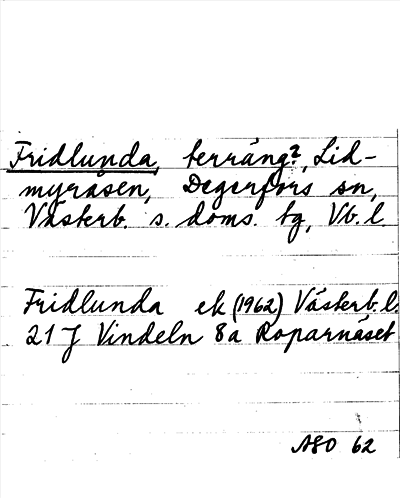 Fridlunda, terräng?, Lid-
myråsen, Degerfors sn,
Västerb. s. doms. tg, Vb.l.
Fridlunda ek (1962) Västerb.l.
21 J Vindeln 8a Roparnäset
ASO 62